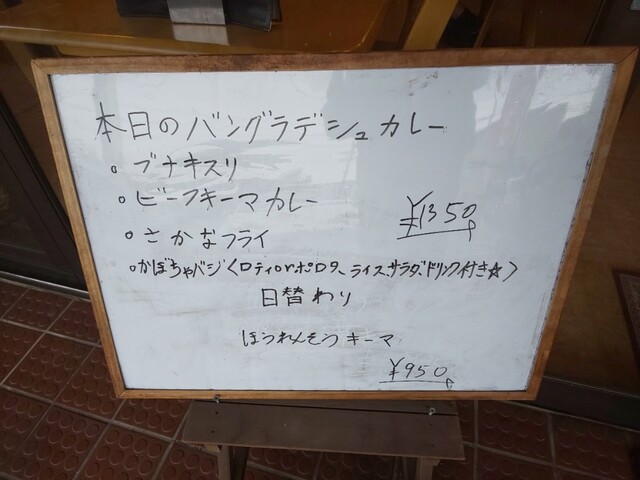 本日のバングラデシュカレー
。ブナキスリ
。ビーフキーマカレー
¥1350
。さかなフライ
。かぼちゃバジ〈ロティorポロタ、ライス、サラダ、ドリンク付き☆〉
日替わり
ほうれんそうキーマ
¥950